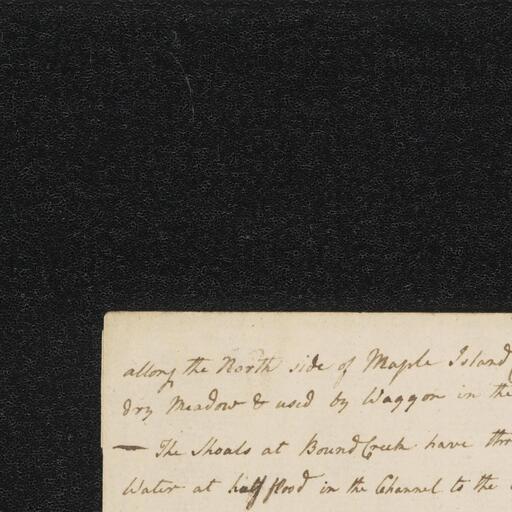 allong the North side of Maple Island
dry Meadow & used by Waggon in the
— The Shoals at Bound Creek have
Water at half flood in the Channel to the